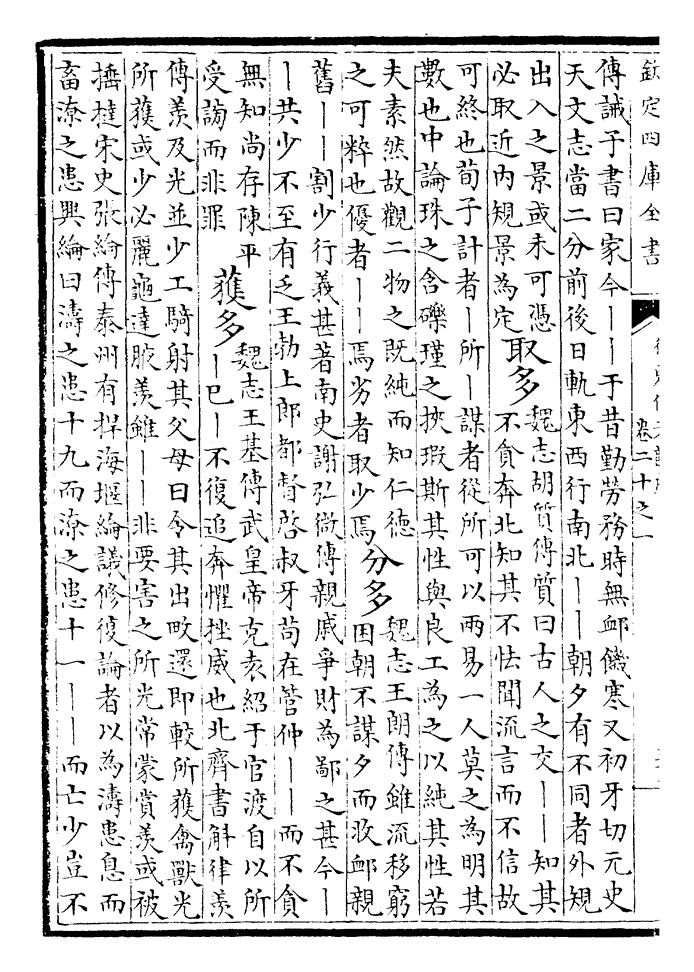 欽定四庫全書
卷二十之一
傳誡子書曰家今丨丨于昔勤勞務時無䘏饑寒又初牙切元史
天文志當二分前後日軌東西行南北丨丨朝夕有不同者外規
出入之景或未可憑
必取近內規景為定
取多
魏志胡質傳質曰古人之交丨丨知其
不貪奔北知其不怯聞流言而不信故
可終也荀子計者丨所丨謀者從所可以兩易一人莫之為明其
數也中論珠之含礫瑾之挾瑕斯其性與良工為之以純其性若
夫素然故觀二物之既純而知仁德
之可粹也優者丨丨焉劣者取少焉
分多
魏志王朗傳雖流移窮
困朝不謀夕而收䘏親
舊丨丨割少行義甚著南史謝弘微傳親戚爭財為鄙之甚今丨
丨共少不至有乏王勃上郎都督啓叔牙苟在管仲丨丨而不貪
無知尚存陳平
受謗而非罪
獲多
魏志王基傳武皇帝克袁紹于官渡自以所
丨巳丨不復追奔懼挫威也北齊書斛律羨
傳羨及光並少工騎射其父母日令其出畋還即較所獲禽獸光
所獲或少必麗龜達腋羨雖丨丨非要害之所光常蒙賞羨或被
捶撻宋史張綸傳泰州有捍海堰綸議修復論者以為濤患息而
畜潦之患興綸曰濤之患十九而潦之患十一丨丨而亡少豈不